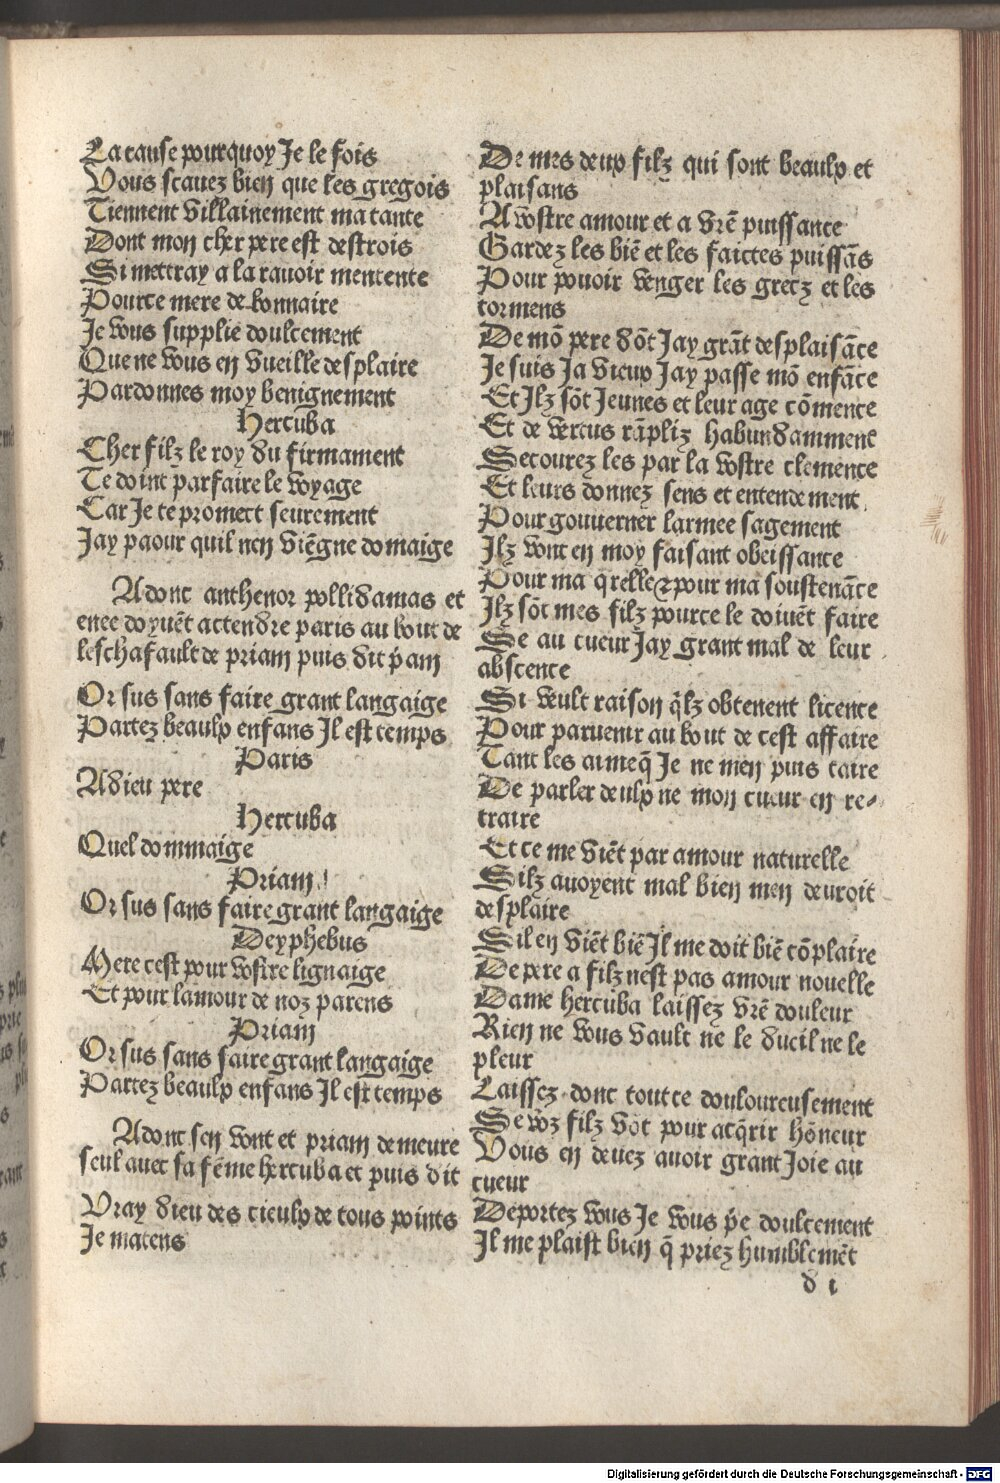 La cause pourquoy Je le fois
Vous scauez bien que les gregois
Tiennent villainement ma tante
Dont mon cher pere est destrois
Si mettray a la rauoir mentente
Pource mere de bonnaire
Je vous supplie doulcement
Que ne vous en vueille desplaire
Pardonnes moy benignement
Hercuba
Cher filz le roy du firmament
Te doint parfaire le voyage
Car Je te promect seurement
Jay paour quil nen viẽgne domaige
Adonc anthenor pollidamas et
enee doyuẽt actendre paris au bout de
leschafault de priam puis dit p̃am
Or sus sans faire grant langaige
Partez beaulx enfans Il est temps
Paris
Adieu pere
Hercuba
Quel dommaige
Priam
Or sus sans faire grant langaige
Deyphebus
Mere cest pour vostre lignaige
Et pour lamour de noz parens
Priam
Or sus sans faire grant langaige
Partez beaulx enfans Il est temps
Adonc sen vont et priam demeure
seul auec sa fẽme hercuba et puis dit
Vray dieu des cieulx de tous points
Je matens
De mes deux filz qui sont beaulx et
plaisans
A vostre amour et a vr̃e puissance
Gardez les biẽ et les faictes puissãs
Pour pouoir venger les grecz et les
tormens
De mõ pere dõt Jay grãt desplaisãce
Je suis Ja vieux Jay passe mõ enfãce
Et Ilz sõt Jeunes et leur age cõmence
Et de vertus rãpliz habundamment
Secourez les par la vostre clemence
Et leurs donnez sens et entendement
Pour gouuerner larmee sagement
Ilz vont en moy faisant obeissance
Pour ma q̃relle ⁊ pour ma soustenãce
Ilz sõt mes filz pource le doiuẽt faire
Se au cueur Jay grant mal de leur
abscence
Si veult raison q̃lz obtenent licence
Pour paruenir au bout de cest affaire
Tant les aime q̃ Je ne men puis taire
De parler deulx ne mon cueur en re-
traire
Et ce me viẽt par amour naturelle
Silz auoyent mal bien men deuroit
desplaire
Sil en viẽt biẽ Il me doit biẽ cõplaire
De pere a filz nest pas amour nouelle
Dame hercuba laissez vr̃e douleur
Rien ne vous vault ne le dueil ne le
pleur
Laissez donc toutte douloureusement
Se voz filz võt pour acq̃rir hõneur
Vous en deuez auoir grant Joie au
cueur
Deportez vous Je vous p̃e doulcement
Il me plaist bien q̃ priez humblemẽt
d i
Digitalisierung gefördert durch die Deutsche Forschungsgemeinschaft - DFG